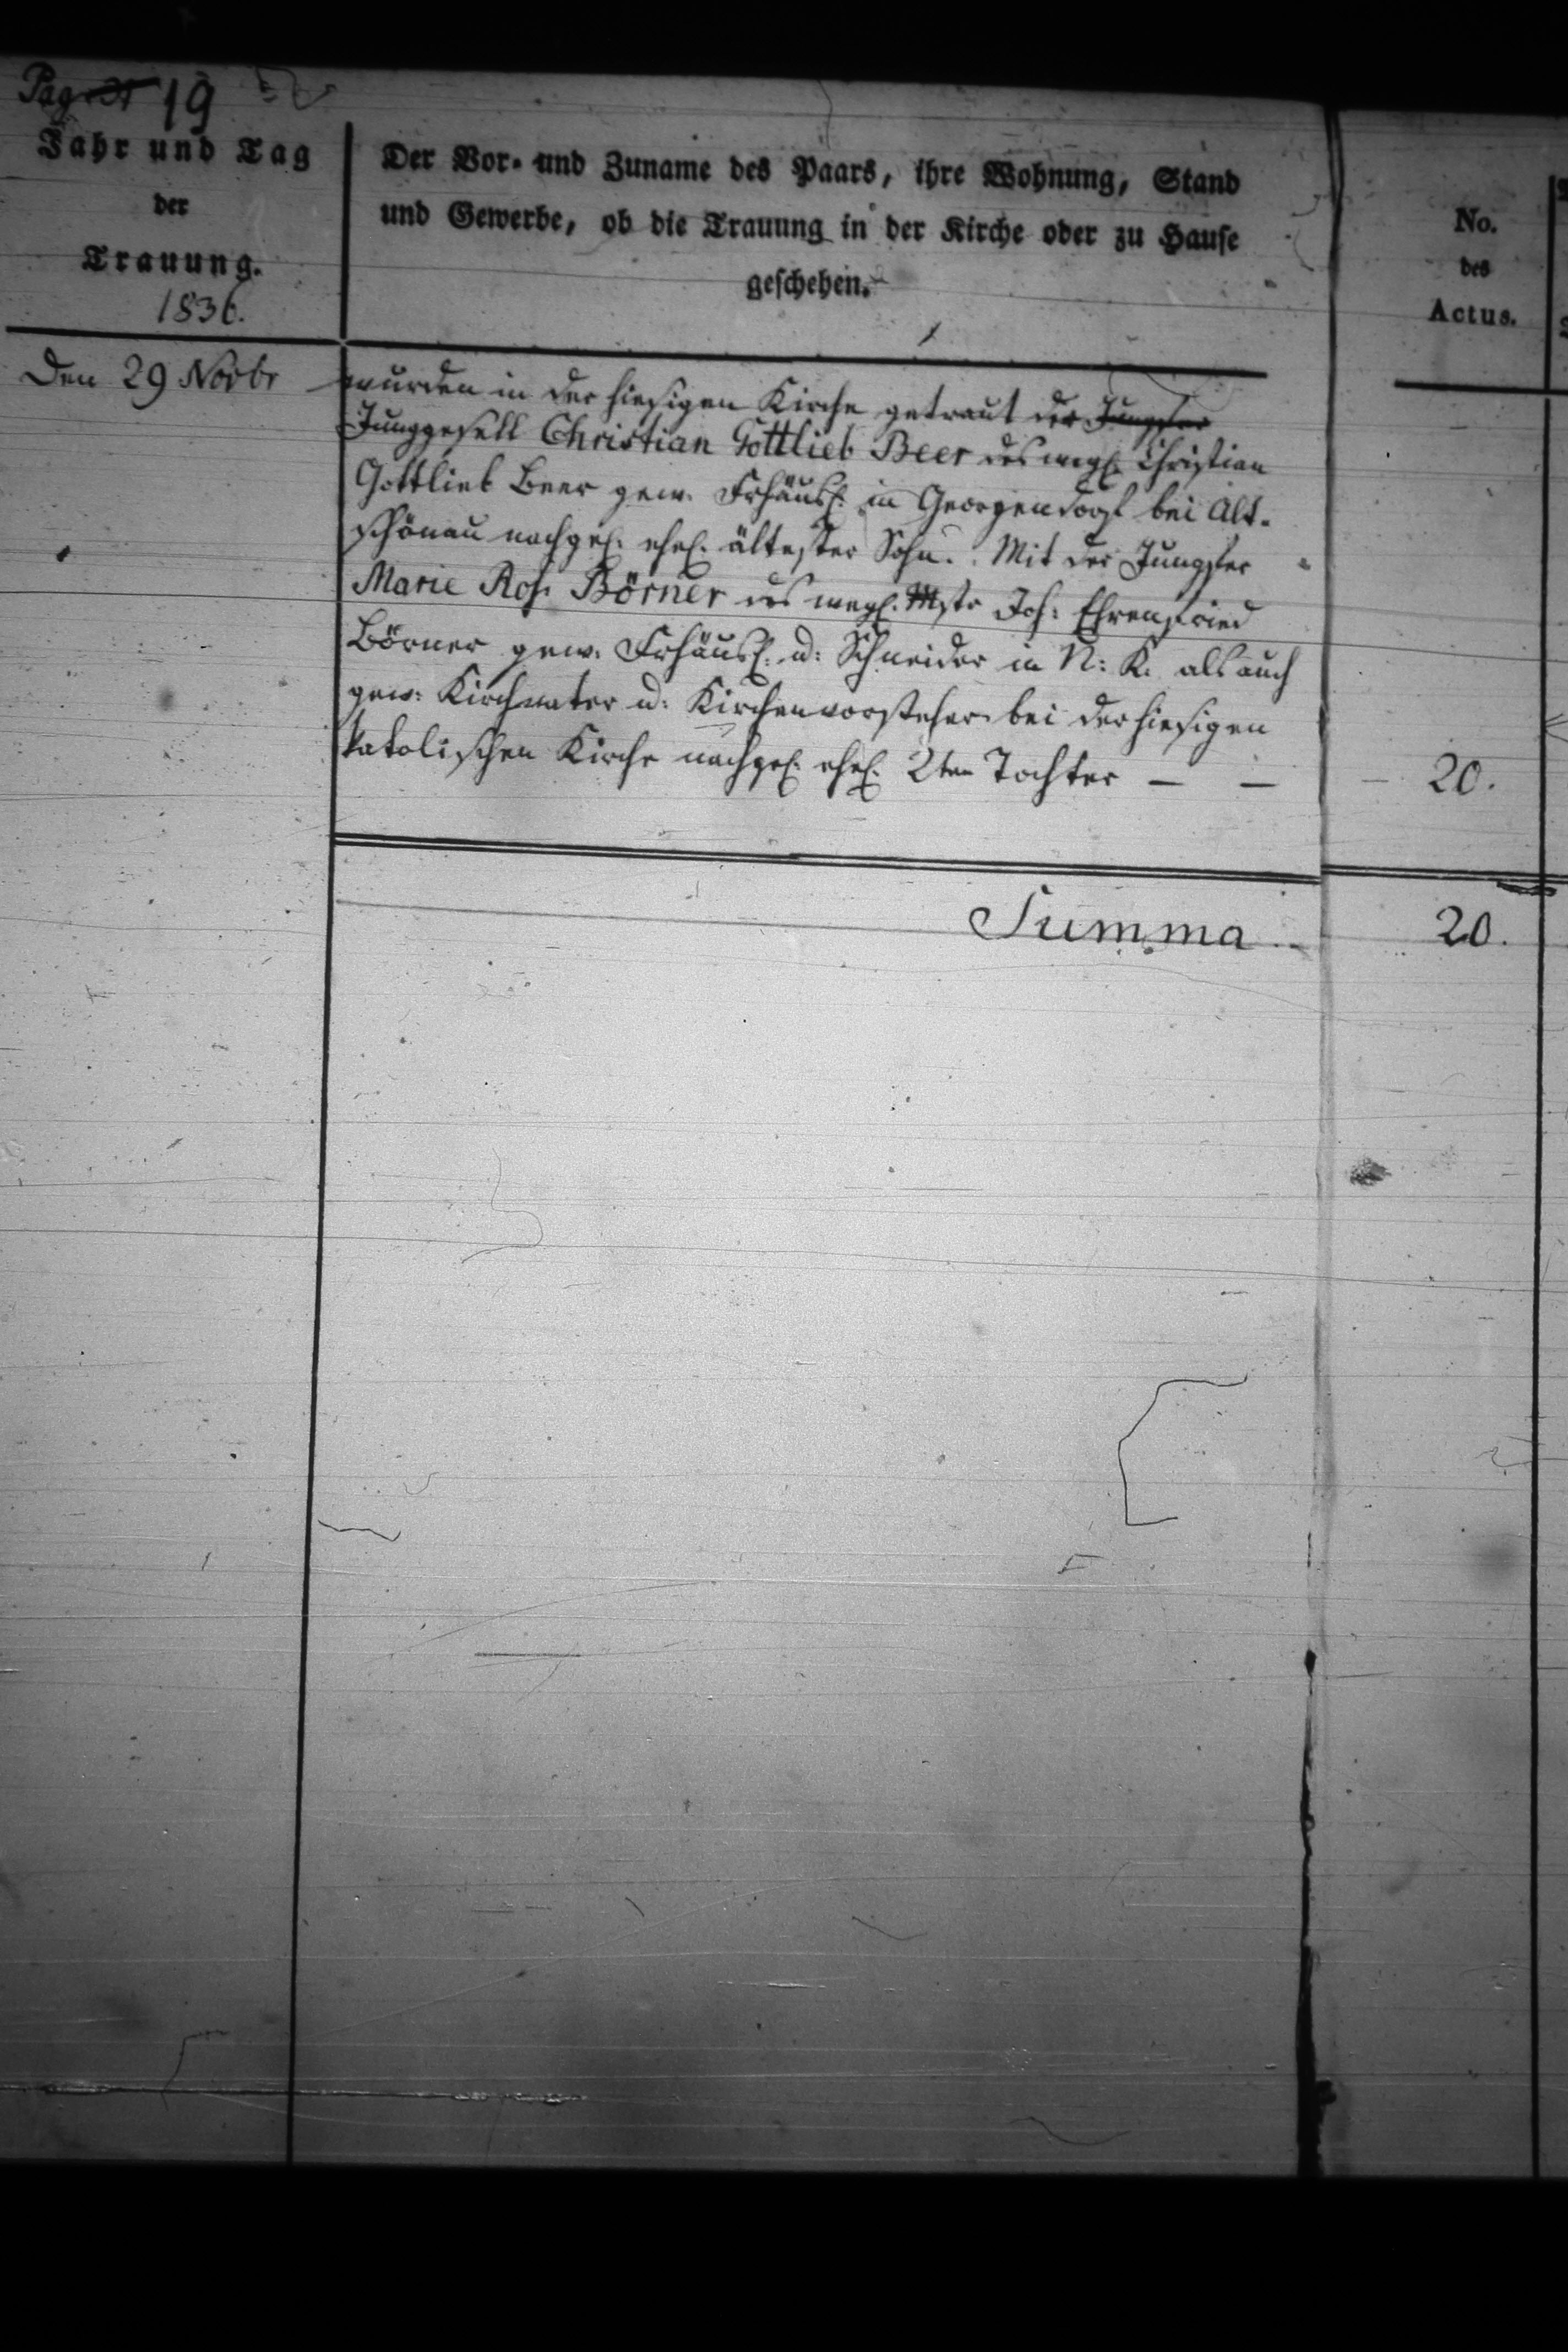 Pag 19
Jahr und Tag
der
Trauung.
1836.
Der Vor- und Zuname des Paars, ihre Wohnung, Stand
und Gewerbe, ob die Trauung in der Kirche oder zu Hause
geschehen.
No.
des
Actus.
Den 29 Novbr
wurden in der hiesigen Kirche getraut der Jungfer
Junggesell Christian Gottlieb Beer des weyl. Christian
Gottlieb Beer gew. Frhäusl. in Georgendorf bei Alt-
schönau nachgel. ehel. ältester Sohn. Mit der Jungfer
Marie Ros. Börner des weyl. Mstr Joh: Ehrenfried
Börner gew. Frhäusl. u: Schneider in N: K. als auch
gew: Kirchvater u: Kirchenvorsteher bei der hiesigen
katolischen Kirche nachgel. ehel. 2ten Tochter — —
20.
Summa
20.